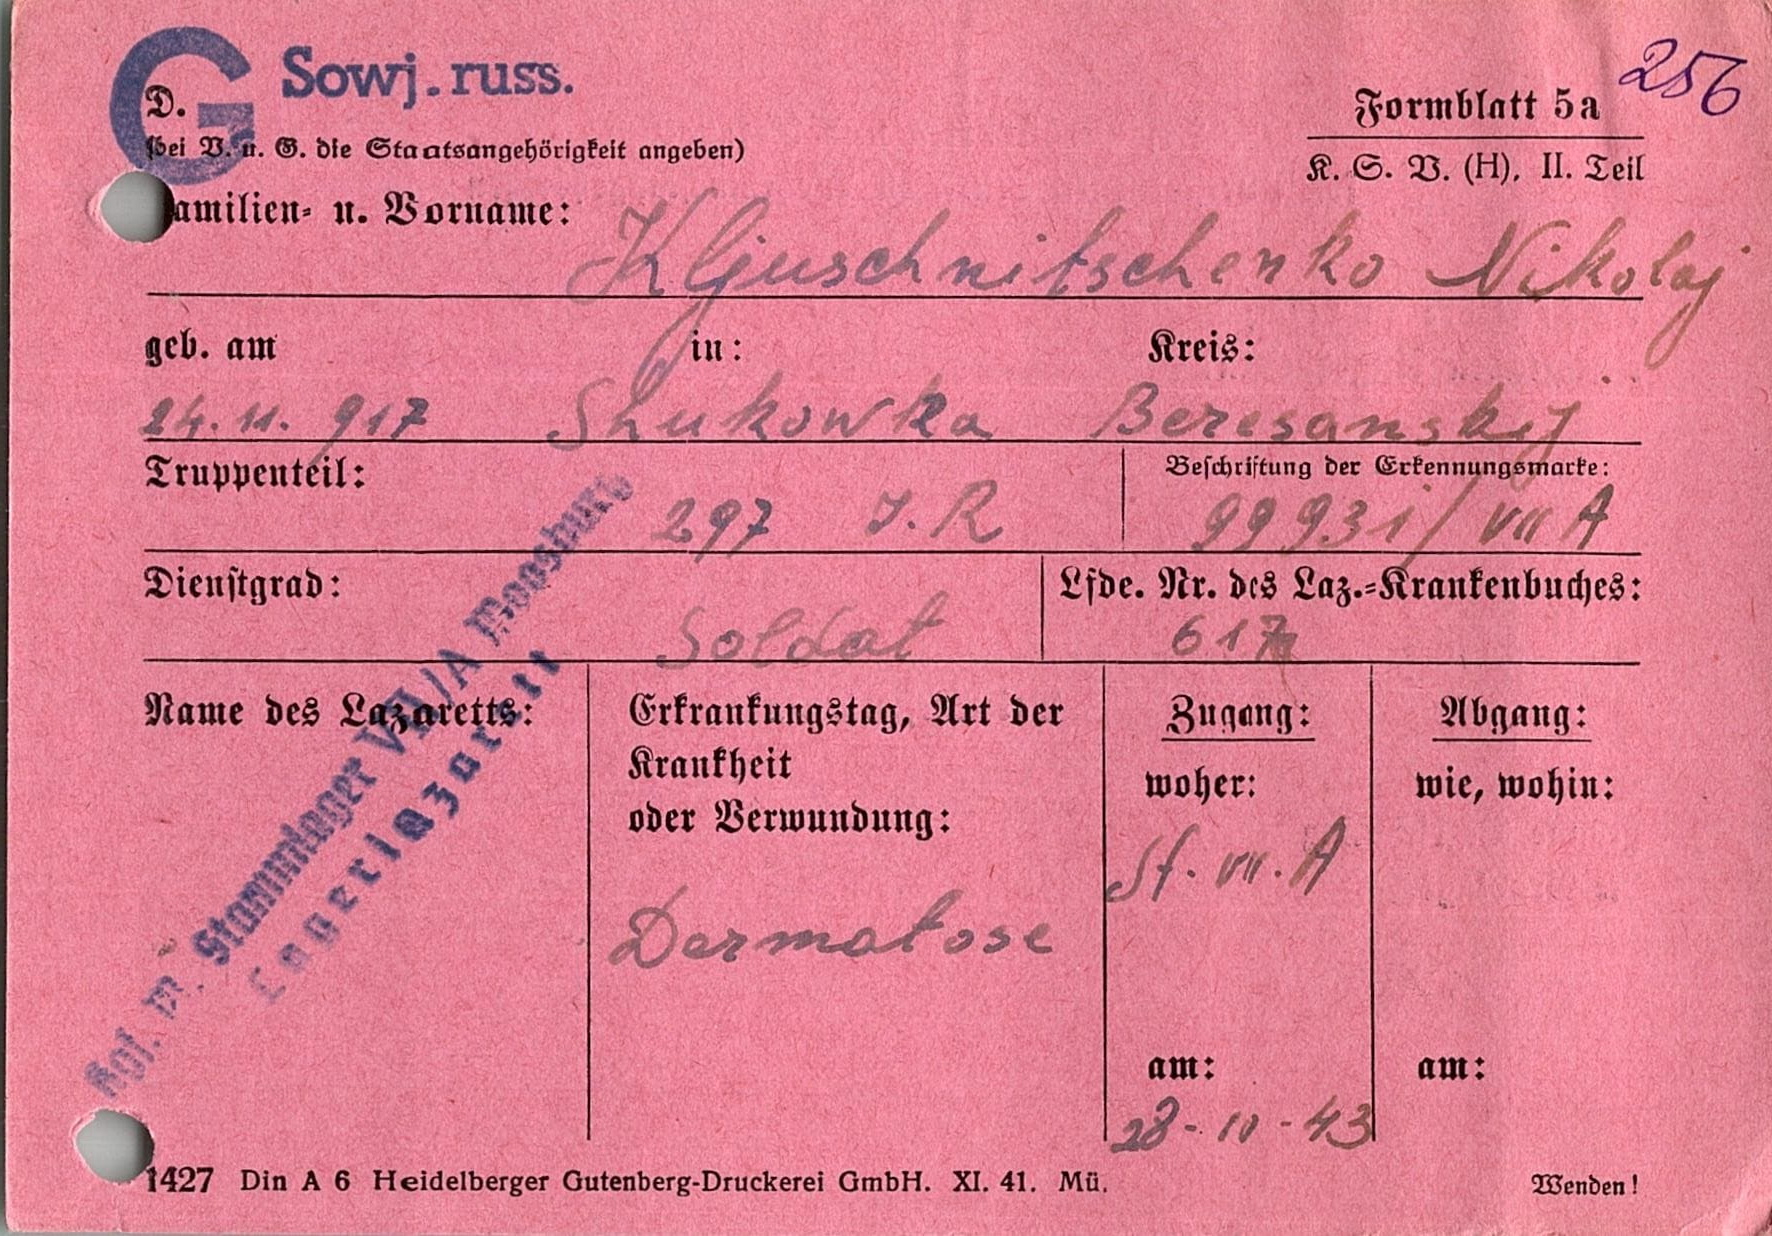 G Sowj. russ.
256
D.
Formblatt 5a
(bei V. u. G. die Staatsangehörigkeit angeben)
K. S. V. (H), II. Teil
amilien- u. Vorname:
Kljuschnitschenko Nikolaj
geb. am in: Kreis:
24.11.917 Shukowka Beresanskij
Truppenteil: Beschriftung der Erkennungsmarke:
297 J.R 99931/VII A
Dienstgrad: Lfde. Nr. des Laz.-Krankenbuches:
Soldat 617
Kgf. M. Stammlager VII/A Moosburg
Lagerlazarett
Name des Lazaretts: Erkrankungstag, Art der Zugang: Abgang:
Krankheit woher: wie, wohin:
oder Verwundung:
St. VII. A
Dermatose
am: am:
28-10-43
1427 Din A 6 Heidelberger Gutenberg-Druckerei GmbH. XI. 41. Mü.
Wenden!